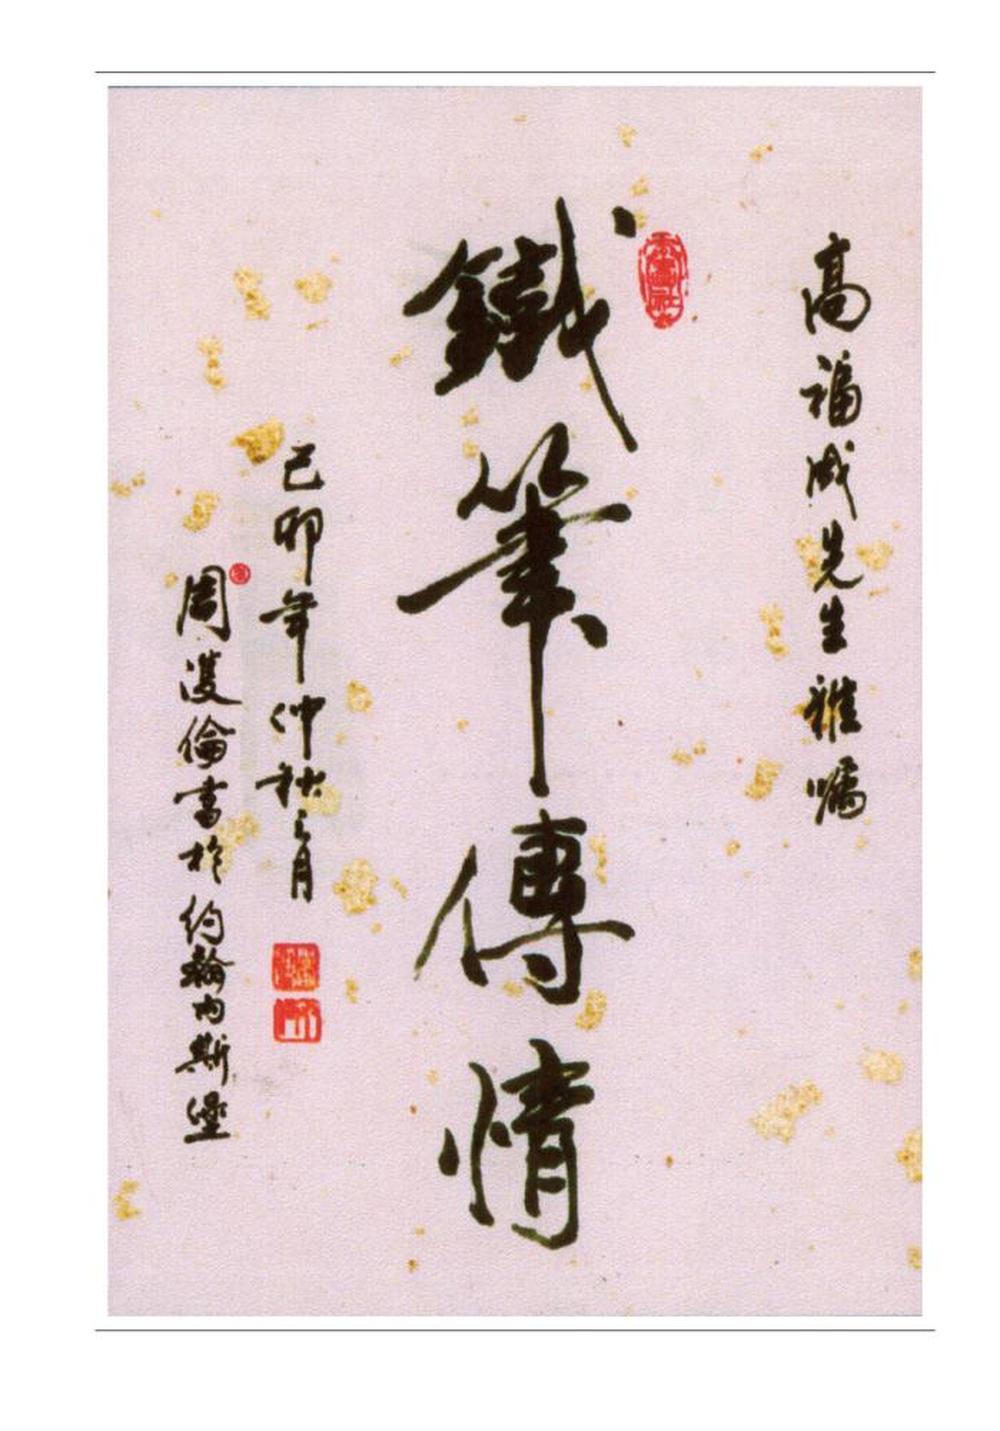 高福成先生雅嘱
鐵筆傳情
己卯年仲秋之月
周漢倫書於約翰内斯堡